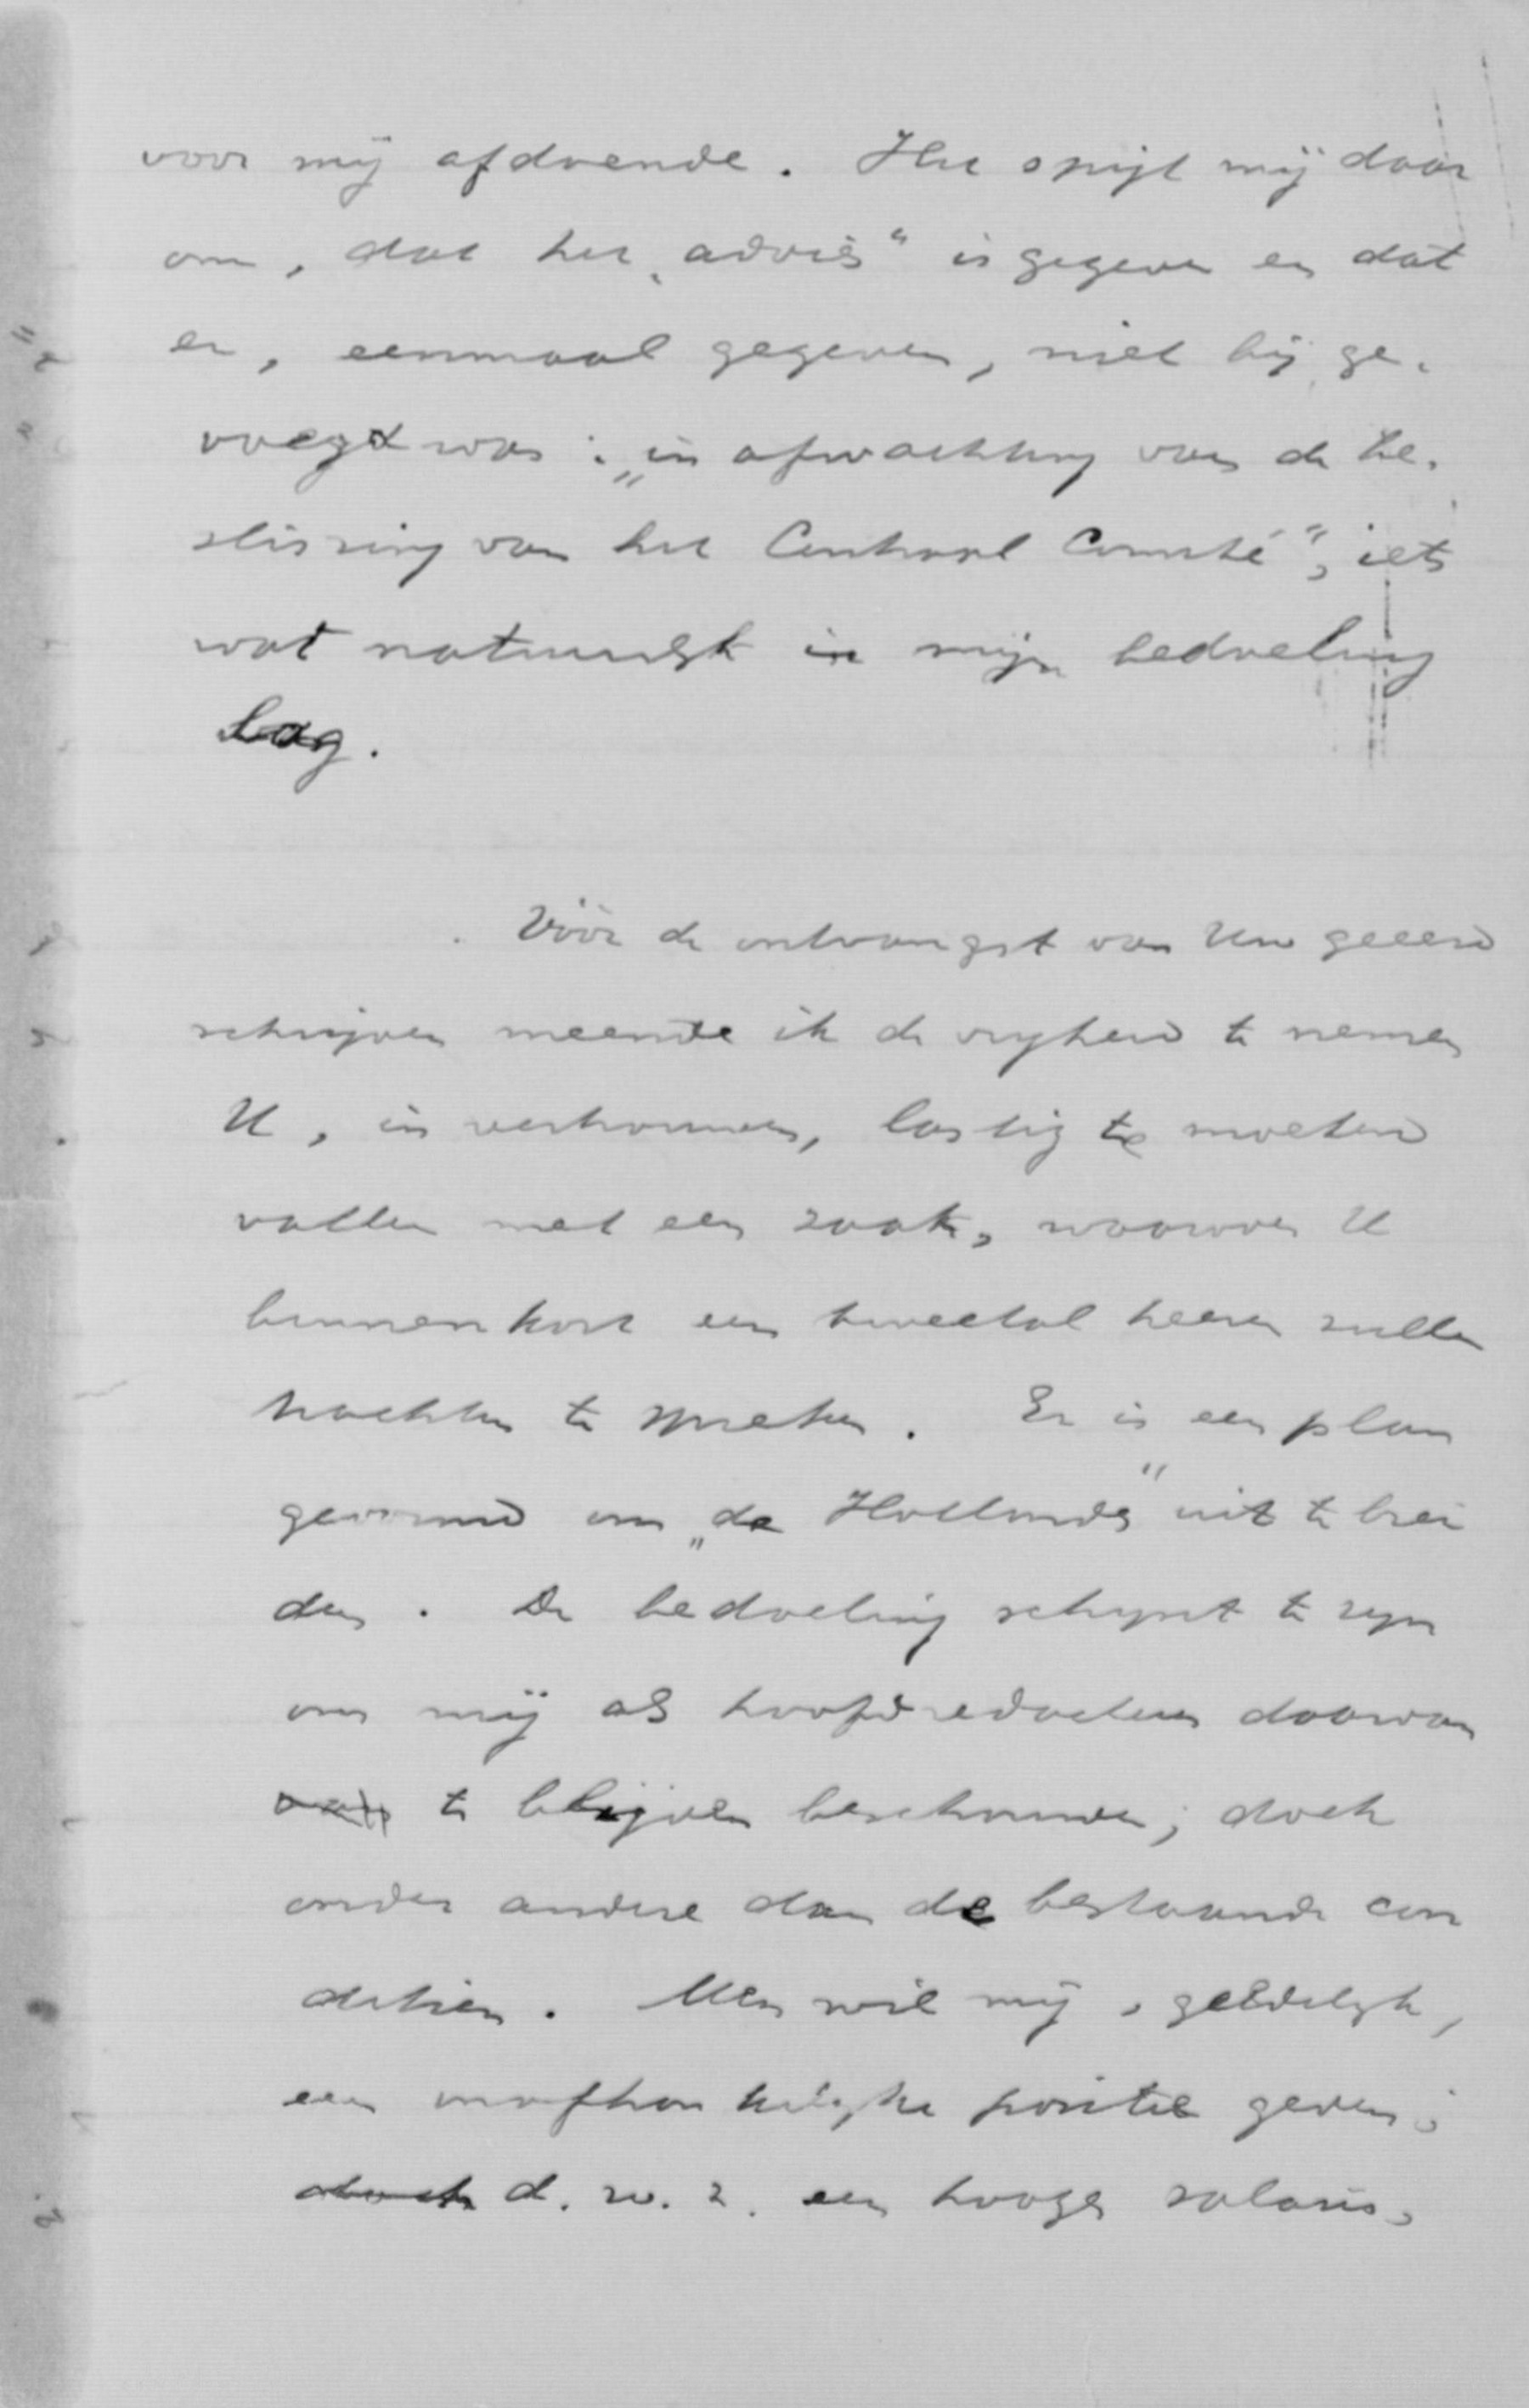 voor mij afdoende. Het spijt mij daar
om, dat het „advies" is gegeven en dat
er, eenmaal gegeven, niet bij ge-
voegd was: „in afwachting van de be-
slissing van het Centraal Comité", iets
wat natuurlijk in mijn bedoeling
lag.
Vóór de ontvangst van Uw geeerd
schrijven meende ik de vrijheid te nemen
U, in vertrouwen, lastig te moeten
vallen met een zaak, waarover U
binnenkort een tweetal heeren zullen
trachten te spreken. Er is een plan
gevormd om „de Hollander" uit te brei
den. De bedoeling schijnt te zijn
om mij als hoofdredacteur daarvan
van te blijven beschouwen; doch
onder andere dan de bestaande con
dities. Men wil mij, geldelijk,
een onafhankelijke positie geven;
doch d.w.z. een hooger salaris,